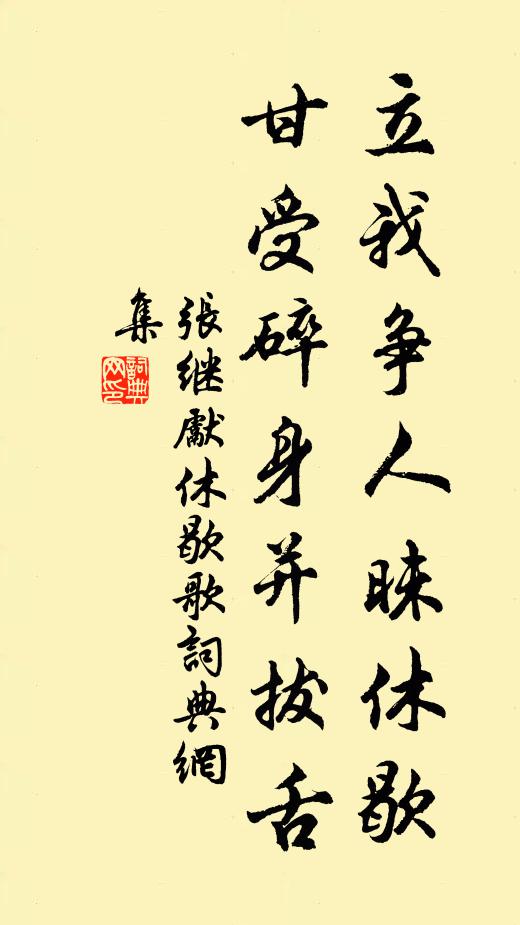 立我争人睐休歇
甘受碎身并拔舌
張继獻休歇歌詞典網
集
詞典
网印